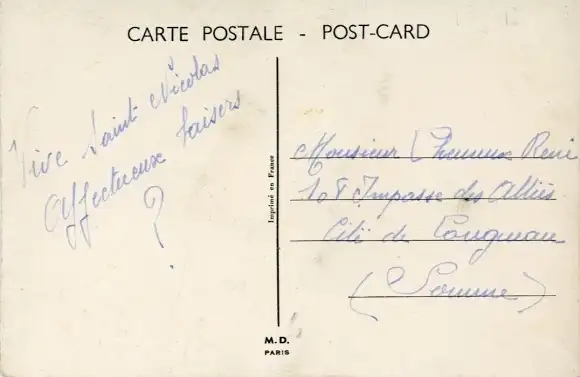 CARTE POSTALE - POST-CARD
Vive Saint Nicolas
Affectueux baisers
?
Imprimé en France
Monsieur René
Impasse des Alliés
Cité de
(Somme)
M.D.
PARIS